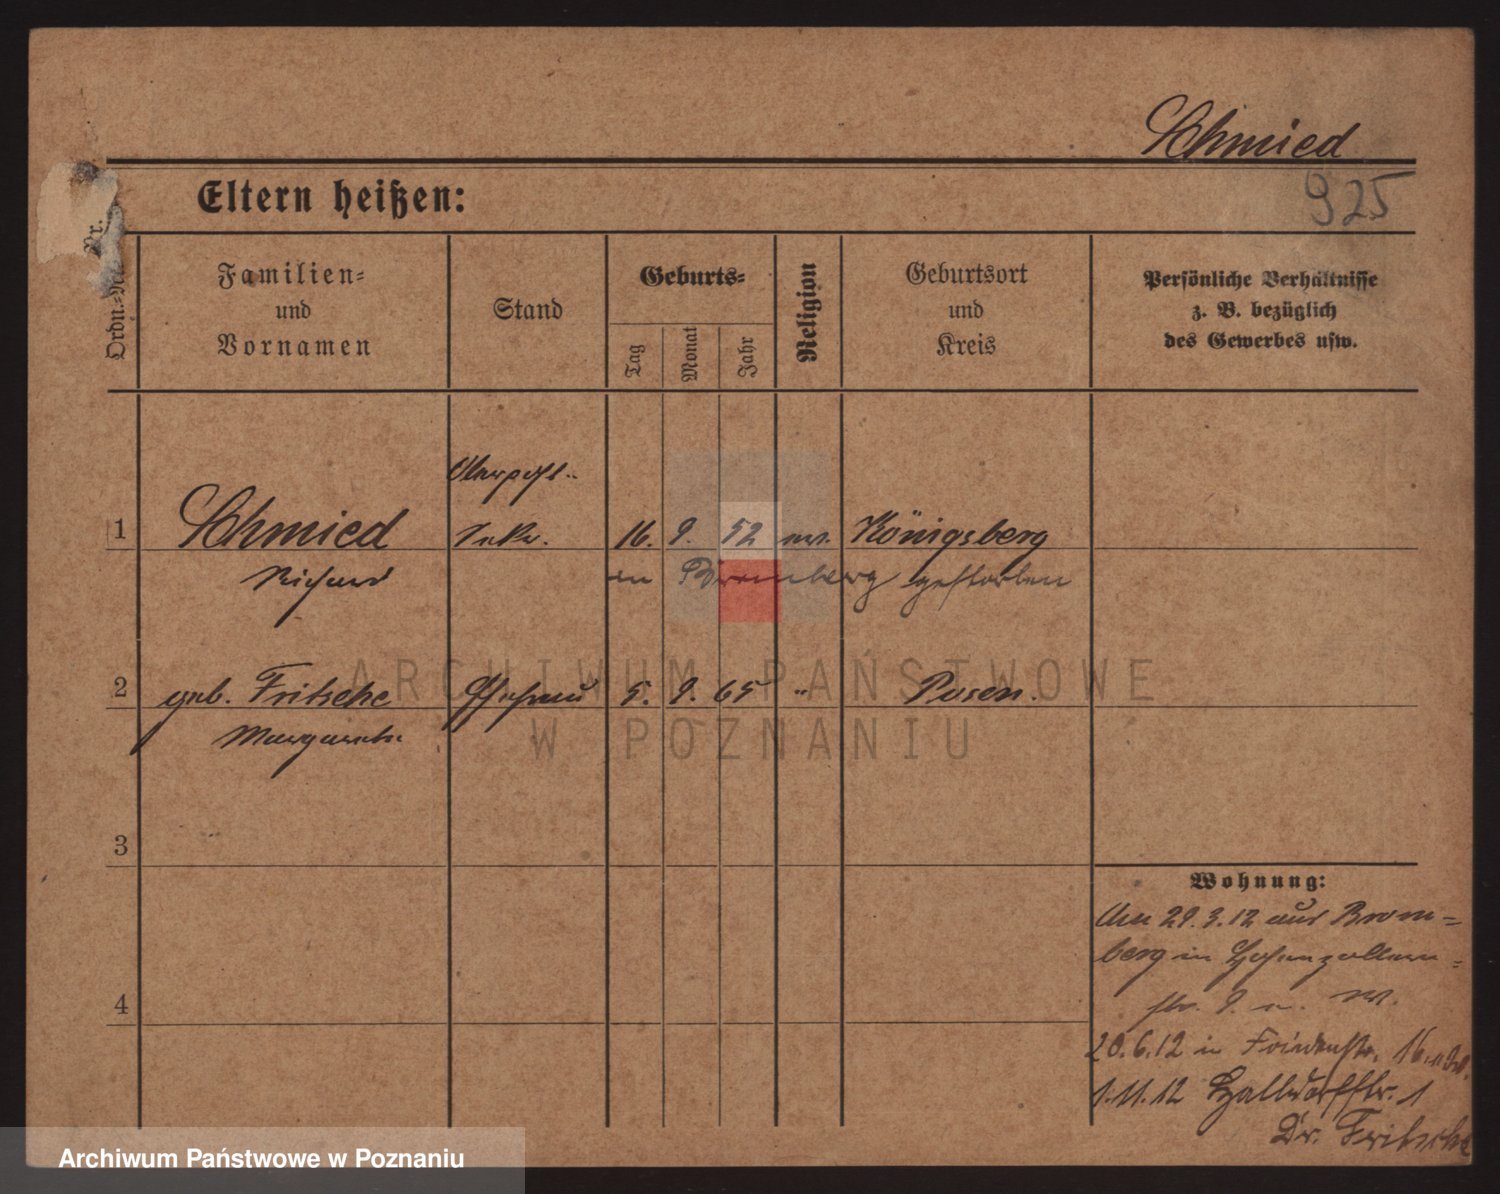 Schmied
925
Eltern heißen:
Ordn.-Nr.
Familien-
und
Vornamen
Stand
Geburts-
Tag
Monat
Jahr
Religion
Geburtsort
und
Kreis
Persönliche Verhältnisse
z. B. bezüglich
des Gewerbes usw.
Oberpost-
1 Schmied Sekr. 16. 9. 52 ev. Königsberg
Richard in Bromberg gestorben
2 geb. Fritsche Ehefrau 5. 9. 65 " Posen.
Margarete
3
4
Wohnung:
29.3.12 aus Brom=
berg in Hohenzollern=
str. 9
20.6.12 in 16
1.11.12 1
Dr. Fritsche
ARCHIWUM PAŃSTWOWE
W POZNANIU
Archiwum Państwowe w Poznaniu